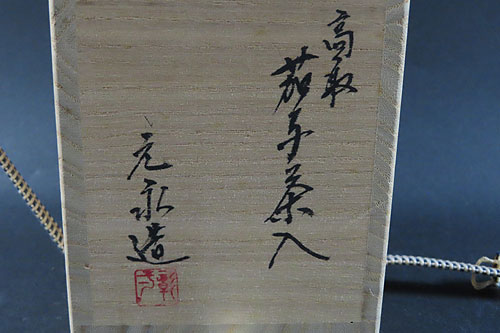 高取
茄子茶入
元永造